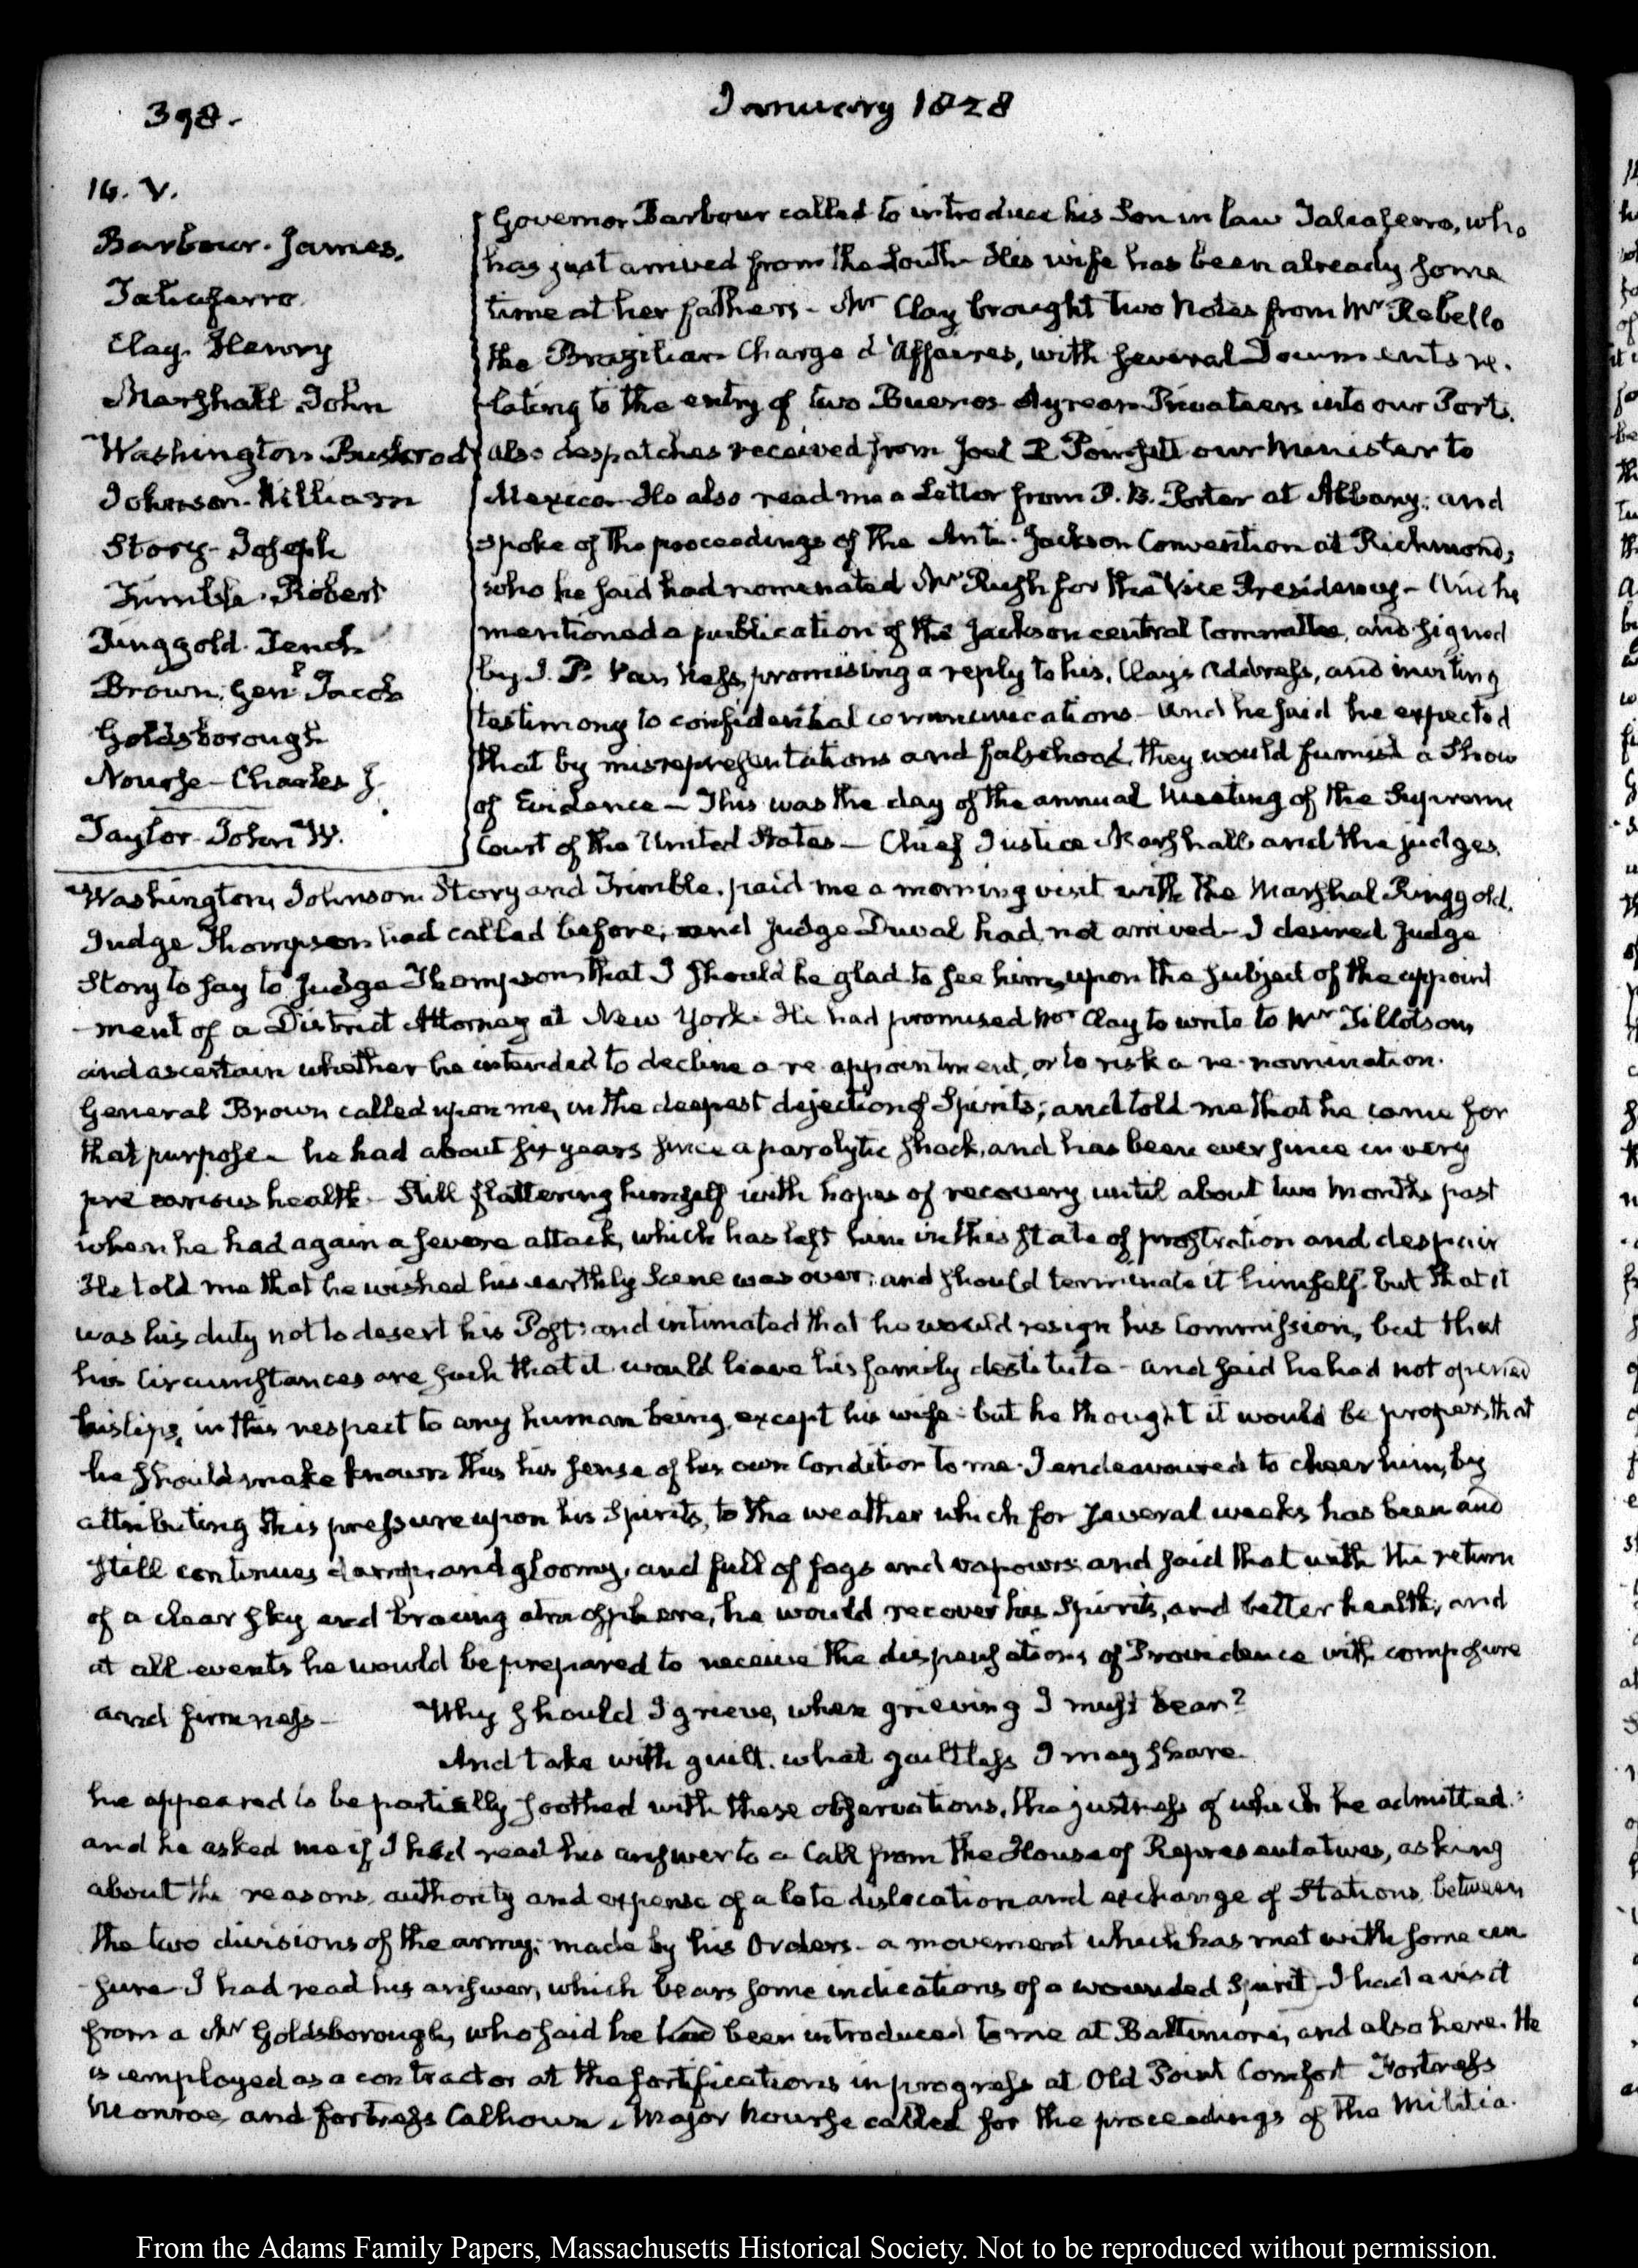 398.
January 1828
16. V.
Barbour. James.
Taliaferro.
Clay. Henry
Marshall John
Washington Bushrod
Johnson. William
Story- Joseph
Trimble. Robert
Ringgold. Tench
Brown, Genl Jacob
Goldsborough
Nourse- Charles J.
Taylor- John W.
Governor Barbour called to introduce his Son in law Taliaferro, who
has just arrived from the South- His wife has been already some
time at her fathers- Mr Clay brought two Notes from Mr Rebello
the Brazilian Charge d'Affaires, with several Documents re-
lating to the entry of two Buenos Ayrean Privateers into our Ports.
also despatches received from Joel R Poinsett our Minister to
Mexico- He also read me a Letter from P. B. Porter at Albany; and
spoke of the proceedings of the Anti-Jackson Convention at Richmond,
who he said had nominated Mr Rush for the Vice Presidency- And he
mentioned a publication of the Jackson central Committee, and signed
by J. P. Van Ness, promising a reply to his, Clay's Address, and inviting
testimony to confidential communications- And he said he expected
that by misrepresentations and falsehood, they would furnish a Show
of Evidence- This was the day of the annual Meeting of the Supreme
Court of the United States- Chief Justice Marshall and the judges
Washington, Johnson Story and Trimble, paid me a morning visit with the Marshal Ringgold.
Judge Thompson had called before, and Judge Duval had not arrived- I desired Judge
Story to say to Judge Thompson that I should be glad to see him, upon the subject of the appoint
-ment of a District Attorney at New York- He had promised Mr Clay to write to Mr Tillotson,
and ascertain whether he intended to decline a re-appointment, or to risk a re-nomination.
General Brown called upon me, in the deepest dejection of Spirits; and told me that he came for
that purpose- he had about six years since a paralytic shock, and has been ever since in very
precarious health- Still flattering himself with hopes of recovery until about two Months past
when he had again a severe attack, which has left him in this state of prostration and despair
He told me that he wished his earthly Scene was over; and should terminate it himself but that it
was his duty not to desert his Post: and intimated that he would resign his Commission, but that
his Circumstances are such that it would leave his family destitute- and said he had not opened
his lips, in this respect to any human being, except his wife: but he thought it would be proper that
he should make known this his sense of his own Condition to me. I endeavoured to cheer him, by
attributing this pressure upon his Spirits, to the weather which for several weeks has been and
still continues damp, and gloomy, and full of fogs and vapours; and said that with the return
of a clear sky and bracing atmosphere, he would recover his Spirits, and better health; and
at all events he would be prepared to receive the dispensations of Providence with composure
and firmness- Why should I grieve, when grieving I must bear?
And take with guilt, what guiltless I may share.
he appeared to be partially soothed with these observations, the justness of which he admitted:
and he asked me if I had read his answer to a Call from the House of Representatives, asking
about the reasons, authority and expense of a late dislocation and exchange of Stations, between
the two divisions of the army; made by his Orders- a movement which has met with some cen
-sure- I had read his answer, which bears some indications of a wounded Spirit- I had a visit
from a Mr Goldsborough, who said he had been introduced to me at Baltimore, and also here. He
is employed as a contractor at the fortifications in progress at Old Point Comfort Fortress
Monroe, and fortress Calhoun. Major Nourse called for the proceedings of the Militia.
From the Adams Family Papers, Massachusetts Historical Society. Not to be reproduced without permission.